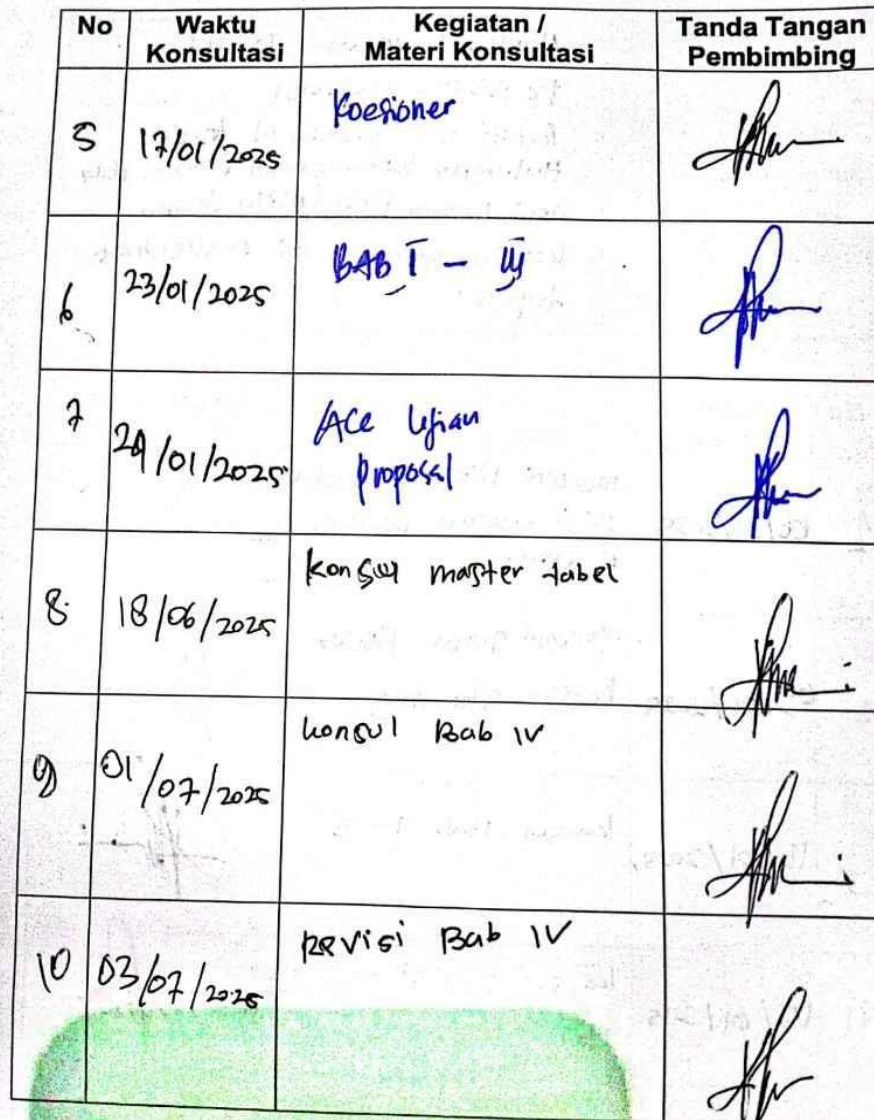 No Waktu Konsultasi Kegiatan / Materi Konsultasi Tanda Tangan Pembimbing
5 17/01/2025 Koesioner
6 23/01/2025 BAB I - III
7 24/01/2025 ACC Ujian
Proposal
8. 18/06/2025 Konsul master tabel
9 01/07/2025 Konsul Bab IV
10 03/07/2025 Revisi Bab IV